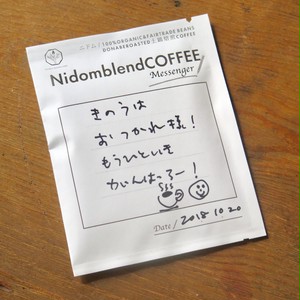 ニドム / 100% ORGANIC & FAIRTRADE BEANS
DONABE ROASTED 土鍋焙煎 COFFEE
NidomblendCOFFEE
Messenger
きのうは
おつかれ様!
もうひといき
がんばろー!
Date / 2018 10 20